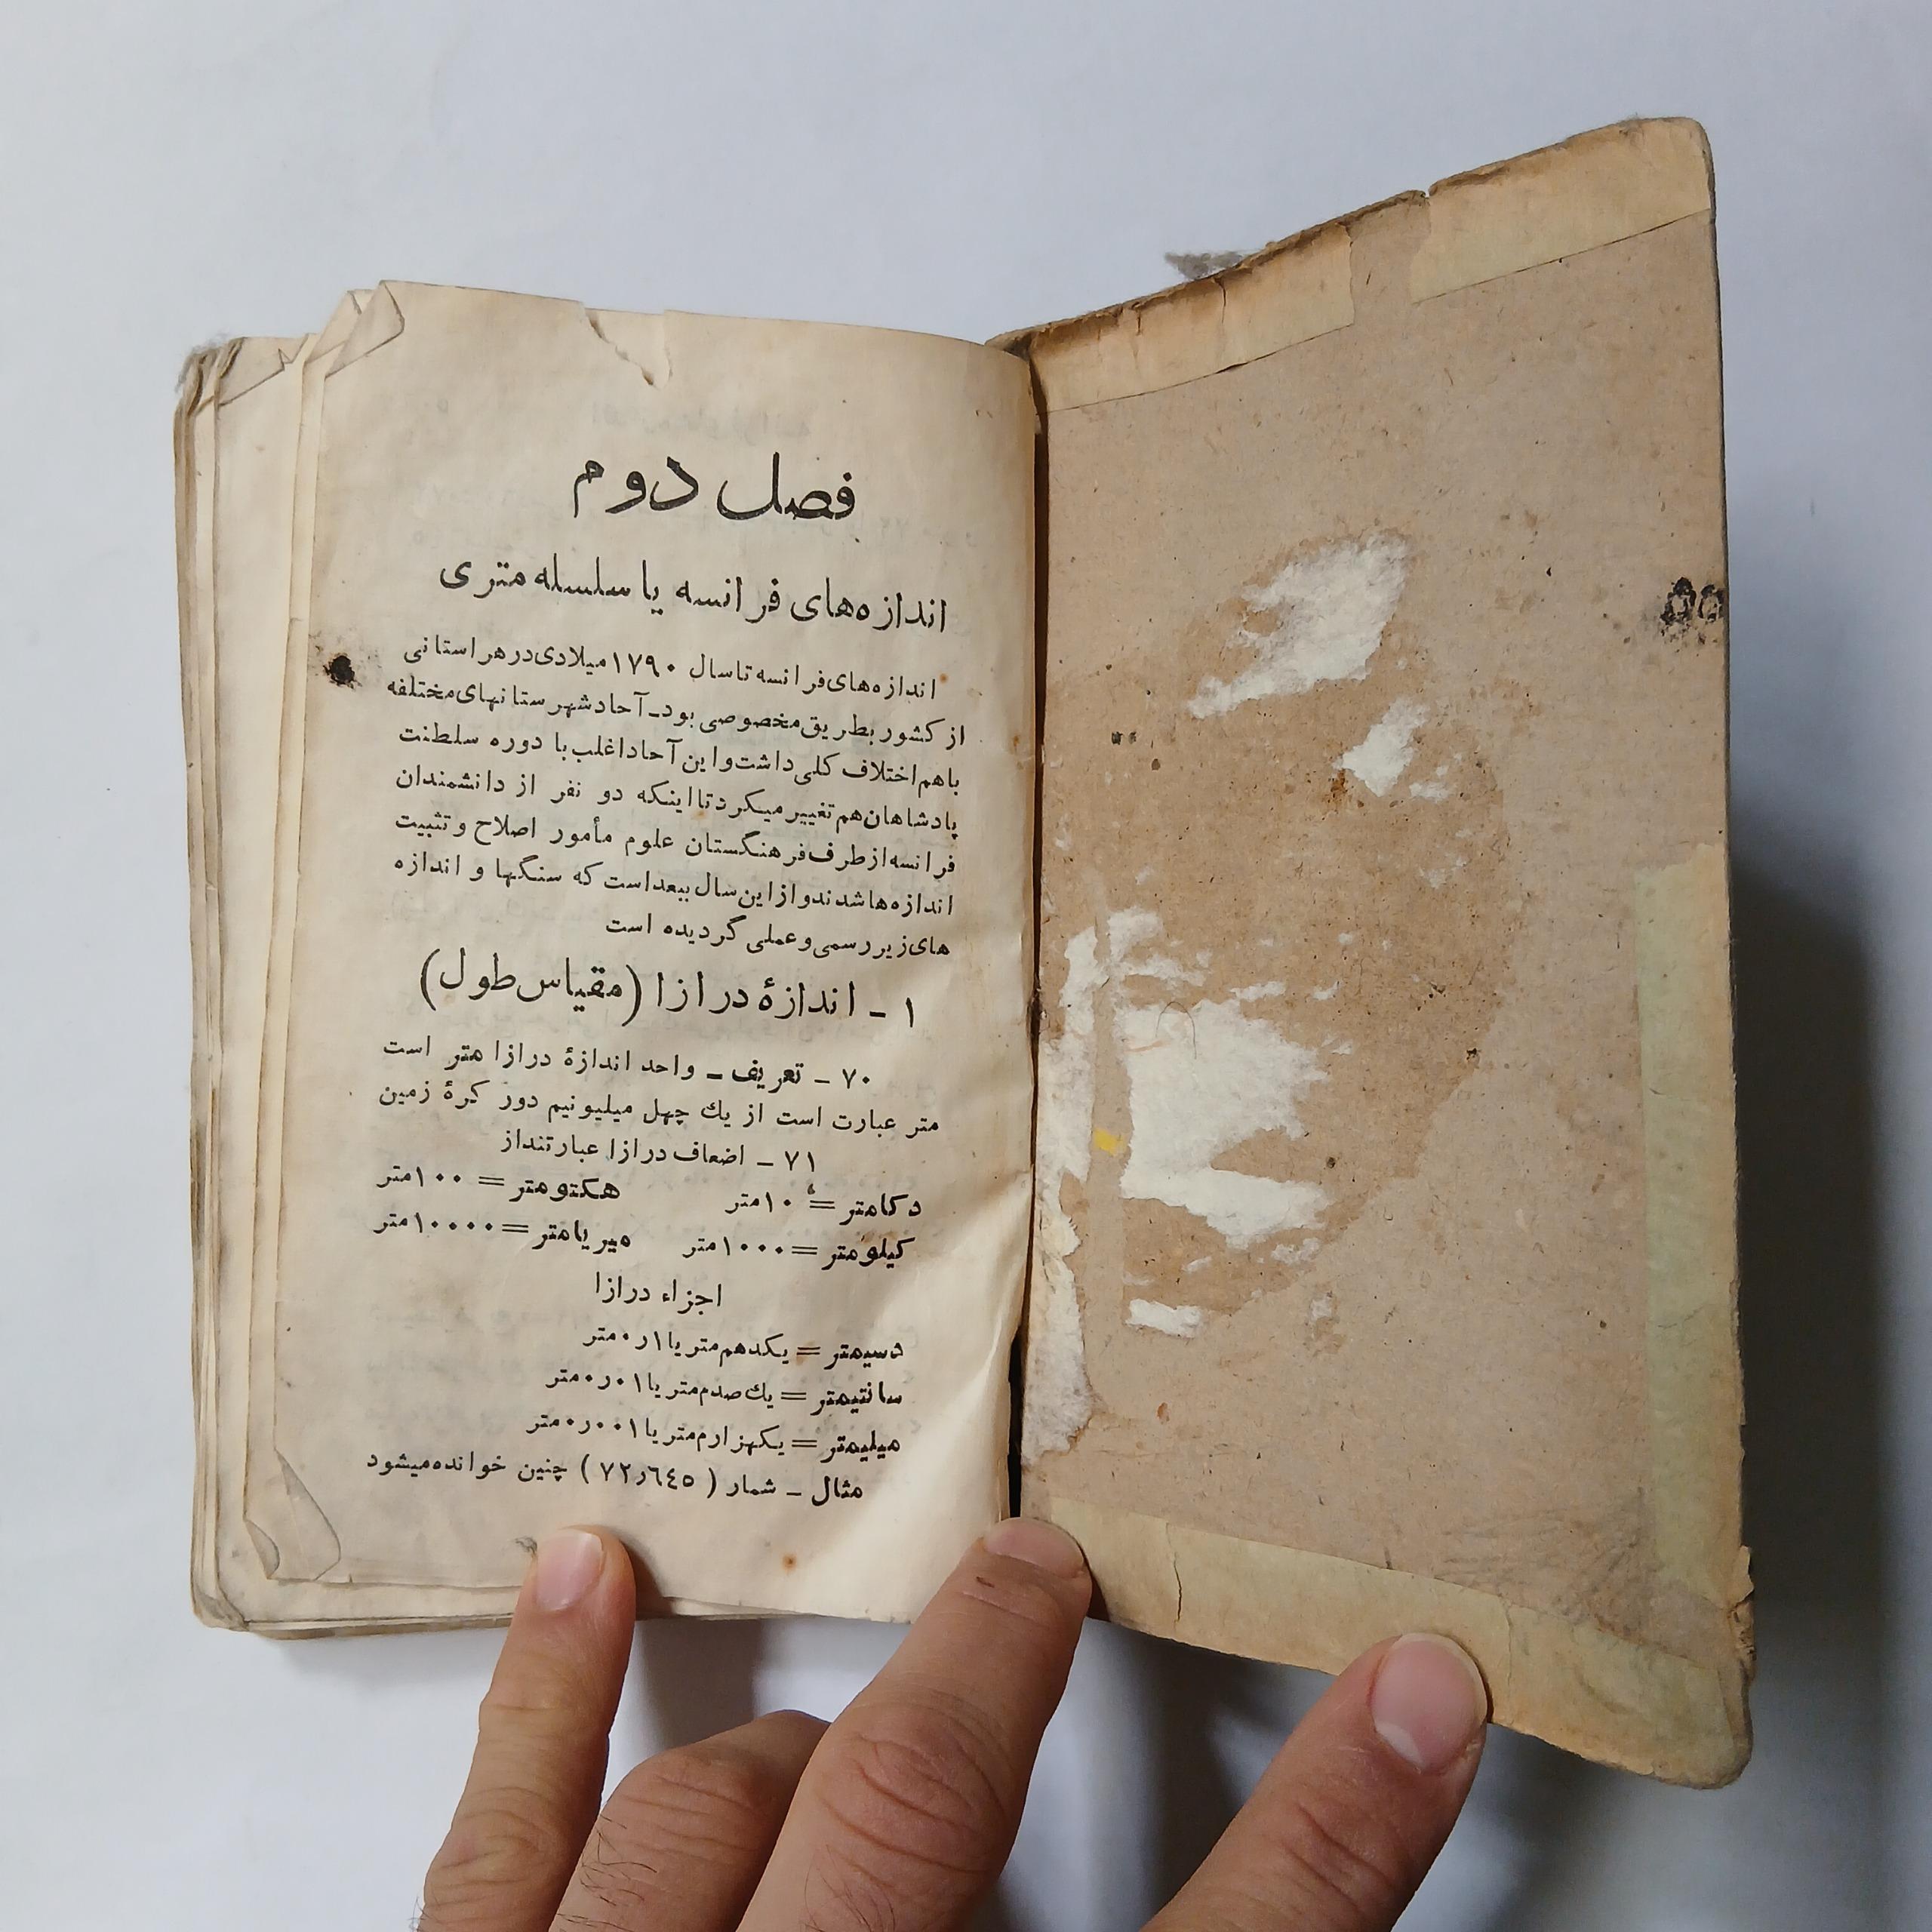 فصل دوم
اندازه‌های فرانسه یا سلسله متری
اندازه‌های فرانسه تا سال ۱۷۹۰ میلادی در هر استانی
از کشور بطریق مخصوصی بود ـ آحاد شهرستانهای مختلفه
با هم اختلاف کلی داشت و این آحاد اغلب با دوره سلطنت
پادشاهان هم تغییر میکرد تا اینکه دو نفر از دانشمندان
فرانسه از طرف فرهنگستان علوم مأمور اصلاح و تثبیت
اندازه‌ها شدند و از این سال ببعد است که سنگها و اندازه
های زیر رسمی و عملی گردیده است
۱ ـ اندازهٔ درازا (مقیاس طول)
۷۰ ـ تعریف ـ واحد اندازهٔ درازا متر است
متر عبارت است از یك چهل میلیونیم دور کرهٔ زمین
۷۱ ـ اضعاف درازا عبارتند از
دکامتر = ۱۰ متر هکتومتر = ۱۰۰ متر
کیلومتر = ۱۰۰۰ متر میریامتر = ۱۰۰۰۰ متر
اجزاء درازا
دسیمتر = یکدهم متر یا ۰ر۱ متر
سانتیمتر = یك صدم متر یا ۰ر۰۱ متر
میلیمتر = یکهزارم متر یا ۰ر۰۰۱ متر
مثال ـ شمار ( ۷۲ر٦٤٥ ) چنین خوانده میشود